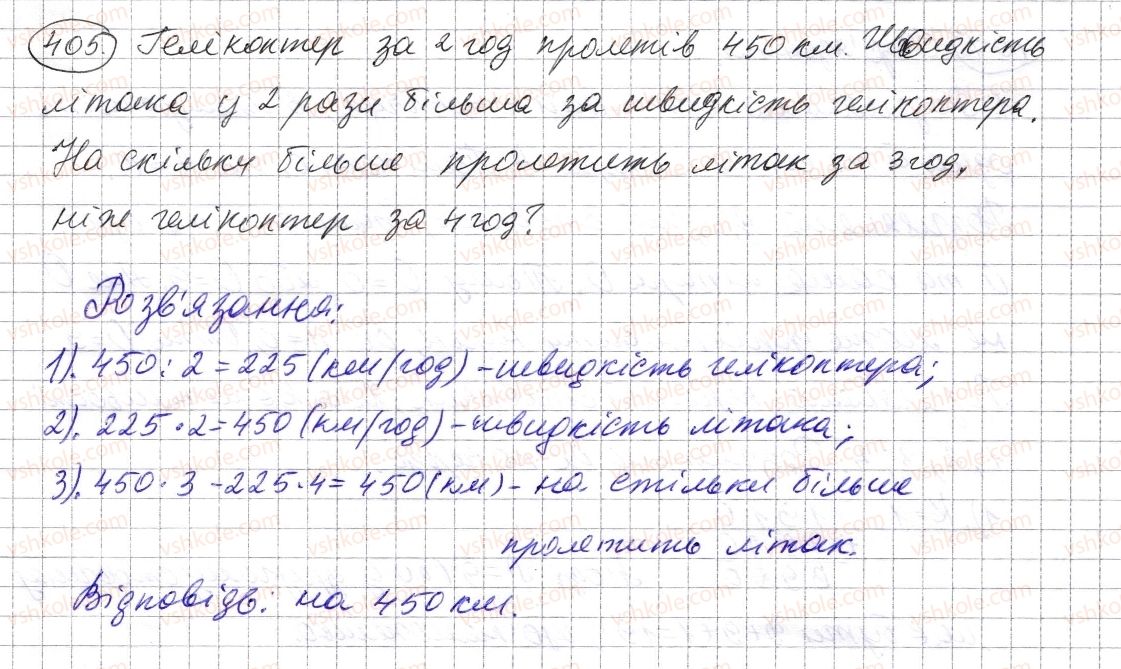 405. Гелікоптер за 2 год пролетів 450 км. Швидкість
літака у 2 рази більша за швидкість гелікоптера.
На скільки більше пролетить літак за 3 год,
ніж гелікоптер за 4 год?
Розв'язання:
1). 450 : 2 = 225 (км/год) - швидкість гелікоптера;
2). 225 • 2 = 450 (км/год) - швидкість літака;
3). 450 · 3 - 225 · 4 = 450 (км) - на стільки більше
пролетить літак.
Відповідь: на 450 км.